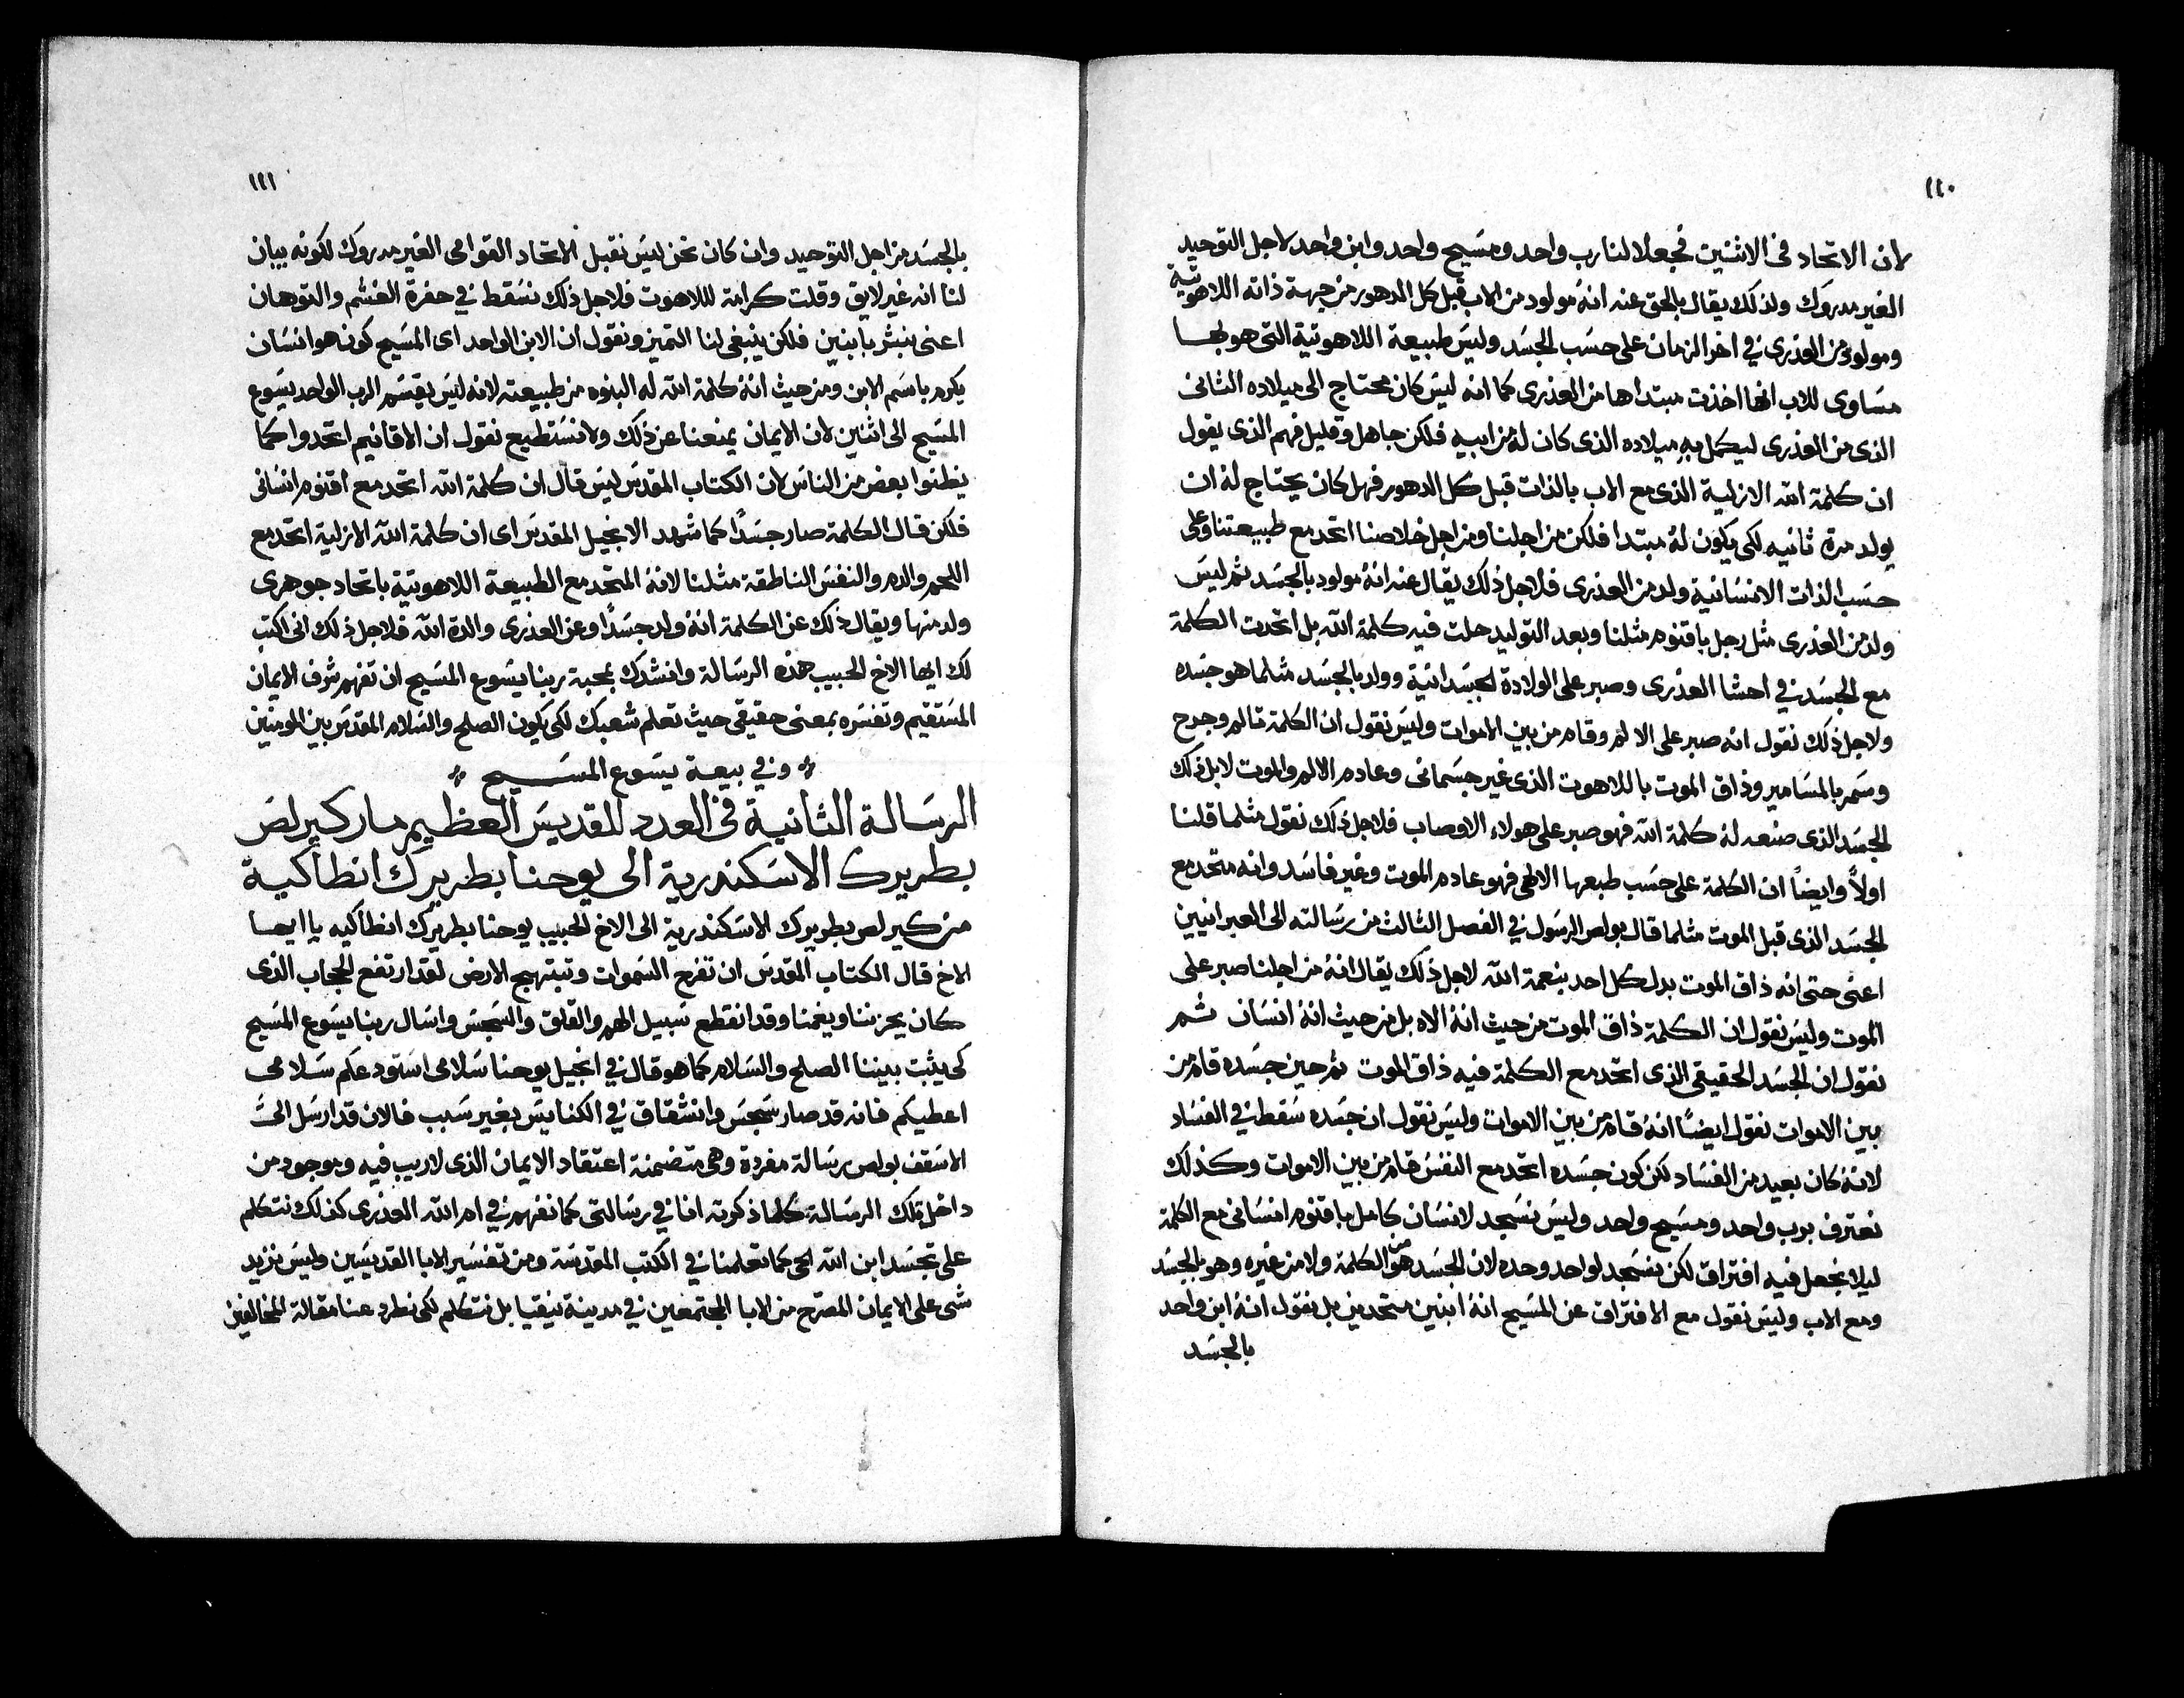 ١٢٠
لان الاتحاد فى الاثنين فجعلا لنا رب واحد ومسيح واحد وابن واحد لاجل التوحيد
الغير مدروك ولذلك يقال بالحق عنه انهُ مولود من الاب قبل كل الدهور من جهة ذاته اللاهوتية
ومولود من العذرى في اخر الزمان على حسَب الجسَد وليسَ طبيعة اللاهوتية التى هو بها
مسَاوى للاب انها اخذت مبتداها من العذرى كما انه ليسَ كان محتاج الى ميلاده الثانى
الذى من العذرى ليكمل بهِ ميلاده الذى كان لهُ من ابيه فلكن جاهل وقليل فهم الذى يقول
ان كلمة الله الازلية الذى مع الاب بالذات قبل كل الدهور فهل كان يحتاج لهُ ان
يولد مرة ثانيه لكى يكون لهُ مبتدا فلكن من اجلنا ومن اجل خلاصنا اتحد مع طبيعتنا وعلى
حسَب الذات الانسَانية ولد من العذرى فلاجل ذلك يقال عنه انهُ مولود بالجسَد ثم ليسَ
ولد من العذرى مثل رجل باقنوم مثلنا وبعد التوليد حلت فيه كلمة الله بل اتحدت الكلمة
مع الجسَد في احشا العذرى وصبر على الولادة الجسَدانية وولد بالجسَد مثلما هو جسَده
ولاجل ذلك نقول انه صبر على الالم وقام من بين الاموات وليسَ نقول ان الكلمة تالم وجرح
وسَمر بالمسَامير وذاق الموت باللاهوت الذى غير جسَمانى وعادم الالم والموت لابل ذلك
الجسَد الذى صنعه لهُ كلمة الله فهو صبر على هولاء الاوصاب فلاجل ذلك نقول مثلما قلنا
اولاً وايضاً ان الكلمة على حسَب طبعها الالهى فهو عادم الموت وغير فاسَد وانه متحد مع
الجسَد الذى قبل الموت مثلما قال بولص الرسَول في الفصل الثالث من رسَالته الى العبرانيين
اعنى حتى انه ذاق الموت بدل كل احد بنعمة الله لاجل ذلك يقال انهُ من اجلنا صبر على
الموت وليسَ نقول ان الكلمة ذاق الموت من حيث انهُ الاه بل من حيث انهُ انسَان ثم
نقول ان الجسَد الحقيقى الذى اتحد مع الكلمة فيه ذاق الموت ثم حين جسَده قام من
بين الاموات نقول ايضًا انهُ قام من بين الاموات وليسَ نقول ان جسَده سَقط في الفسَاد
لانهُ كان بعيد من الفسَاد لكن كون جسَده اتحد مع النفسَ قام من بين الاموات وكذلك
نعترف برب واحد ومسَيح واحد وليسَ نسَجد لانسَان كامل باقنوم انسَانى مع الكلمة
ليلا نجعل فيه افتراق لكن نسَجد لواحد وحده لان الجسَد هو من الكلمة ولا من غيره وهو بالجسَد
ومع الاب وليسَ نقول مع الافتراق عن المسَيح انهُ ابنين متحدين بل نقول انهُ ابن واحد
بالجسَد
١٢١
بالجسَد من اجل التوحيد وان كان نحن ليسَ نقبل الاتحاد القوامى الغير مدروك لكونه يبان
لنا انه غير لايق وقلت كرامة لللاهوت فلاجل ذلك نسَقط في حفرة الغشم والتوهان
اعنى نبشر بابنين فلكن ينبغى لنا التميز ونقول ان الابن الواحد اى المسَيح كونه هو انسَان
يكرم باسَم الابن ومن حيث انهُ كلمة الله له البنوه من طبيعته لانه ليسَ يقسَم الرب الواحد يسَوع
المسَيح الى اثنين لان الايمان يمنعنا عن ذلك ولا نسَتطيع نقول ان الاقانيم اتحدوا كما
يظنوا بعض من الناسَ لان الكتاب المقدسَ ليسَ قال ان كلمة الله اتحد مع اقنوم انسَانى
فلكن قال الكلمة صار جسَدًا كما شهد الانجيل المقدسَ اى ان كلمة الله الازلية اتحد مع
اللحم والدم والنفسَ الناطقة مثلنا لانهُ المتحد مع الطبيعة اللاهوتية باتحاد جوهرى
ولد منها ويقال ذلك عن الكلمة انهُ ولد جسَدًا وعن العذرى والدة الله فلاجل ذلك انى اكتب
لك ايها الاخ الحبيب هذه الرسَالة وانشدك بمحبة ربنا يسَوع المسَيح ان تفهم شرف الايمان
المسَتقيم وتفسَره بمعنى حقيقى حيث تعلم شعبك لكى يكون الصلح والسَلام المقدسَ بين المومنين
وفي بيعة يسَوع المسَيح
الرسَالة الثانية فى العدد للقديسَ العظيم مار كيرلص
بطريرك الاسَكندرية الى يوحنا بطريرك انطاكية
من كيرلص بطريرك الاسَكندرية الى الاخ الحبيب يوحنا بطريرك انطاكيه يا ايها
الاخ قال الكتاب المقدسَ ان تفرح السَموات وتبتهج الارض لقد ارتفع الحجاب الذى
كان يحزننا ويغمنا وقد انقطع سَبيل الهم والقلق والسَجسَ واسَال ربنا يسَوع المسَيح
كى يثبت بيننا الصلح والسَلام كما هو قال في انجيل يوحنا سَلامى اسَتودعكم سَلامى
اعطيكم فانه قد صار سَجسَ وانشقاق في الكنايسَ بغير سَبب فالان قد ارسَل الىَّ
الاسَقف بولص رسَالة مفردة وهى متضمنة اعتقاد الايمان الذى لا ريب فيه وموجود من
داخل تلك الرسَالة كلما ذكرته انا في رسَالتى كما نفهم في ام الله العذرى كذلك نتكلم
على تجسَد ابن الله الحى كما تعلمنا في الكتب المقدسَة ومن تفسَير الابا القديسَين وليسَ نزيد
شى على الايمان المصرح من الابا المجتمعين في مدينة نيقيا بل نتكلم لكى نطرد عنا مقالة المخالفين